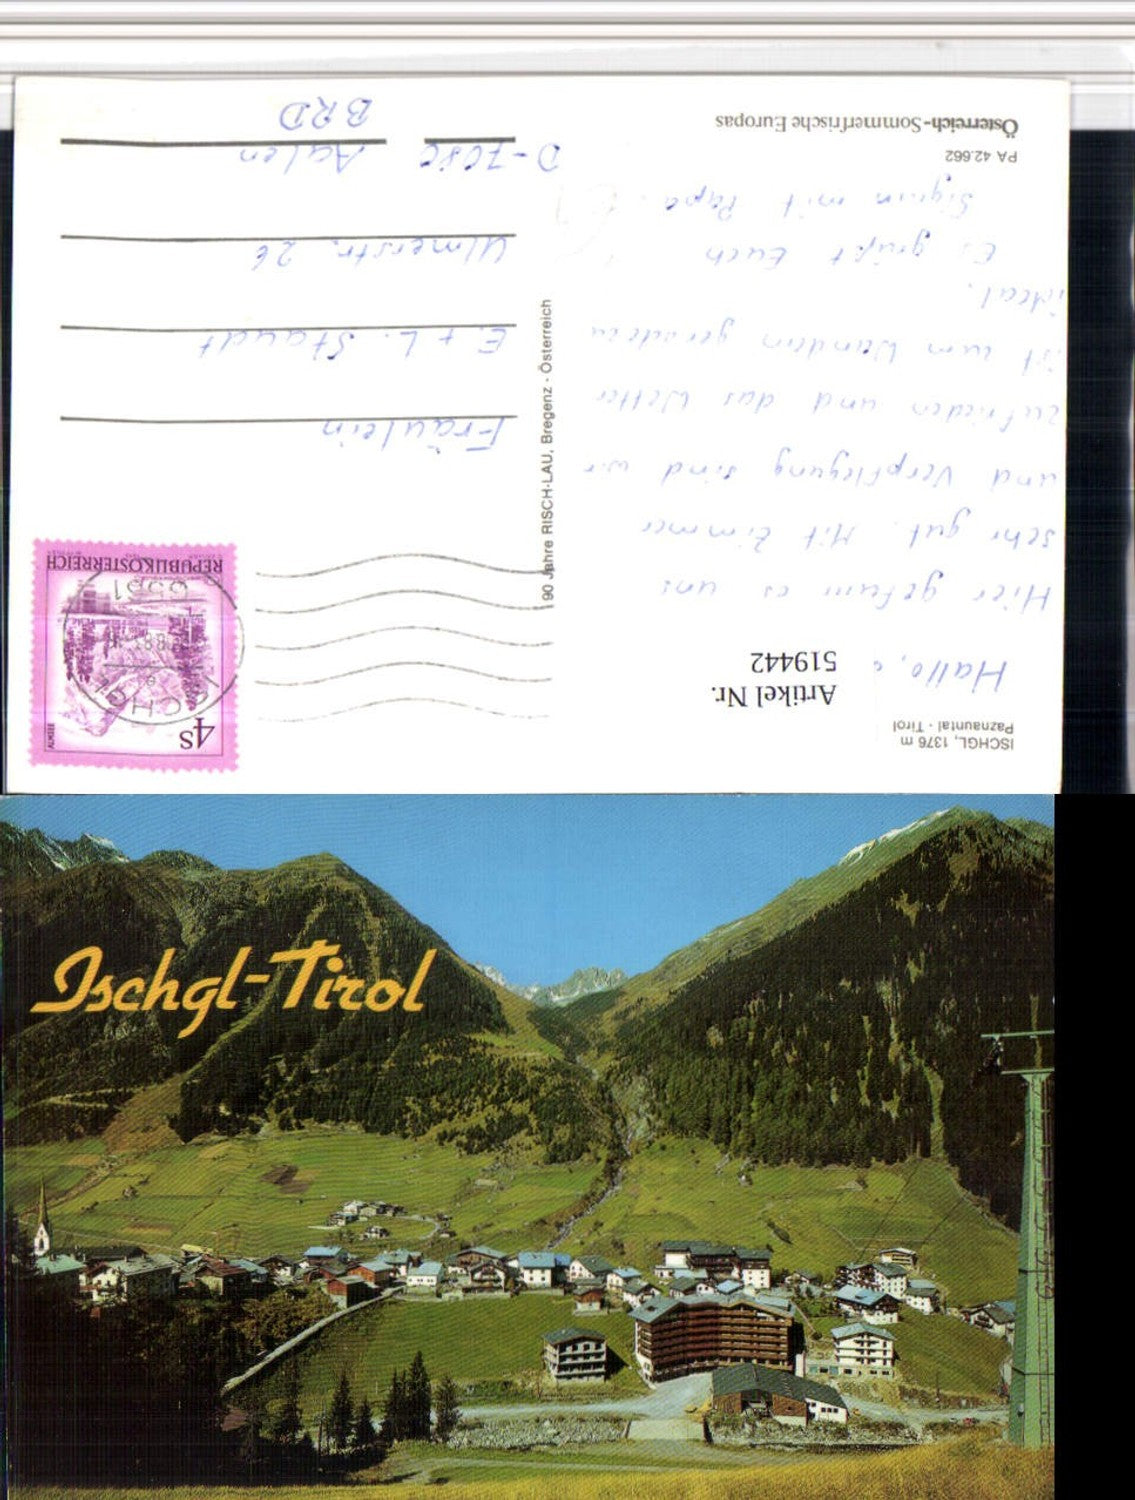 ISCHGL, 1376 m
Paznauntal - Tirol
Artikel Nr.
519442
Hallo,
Hier gefällt es uns
sehr gut. Mit Zimmer
und Verpflegung sind wir
zufrieden und das Wetter
ist zum Wandern geradezu
ideal.
Es grüßt Euch
mit Papa
PA 42.662
Österreich-Sommerfrische Europas
90 Jahre RISCH-LAU, Bregenz - Österreich
4S
ALMSEE
REPUBLIK ÖSTERREICH
ISCHGL
6561
Fräulein
E. + L. Staudt
Ulmerstr. 26
D-7080 Aalen
BRD
Ischgl-Tirol